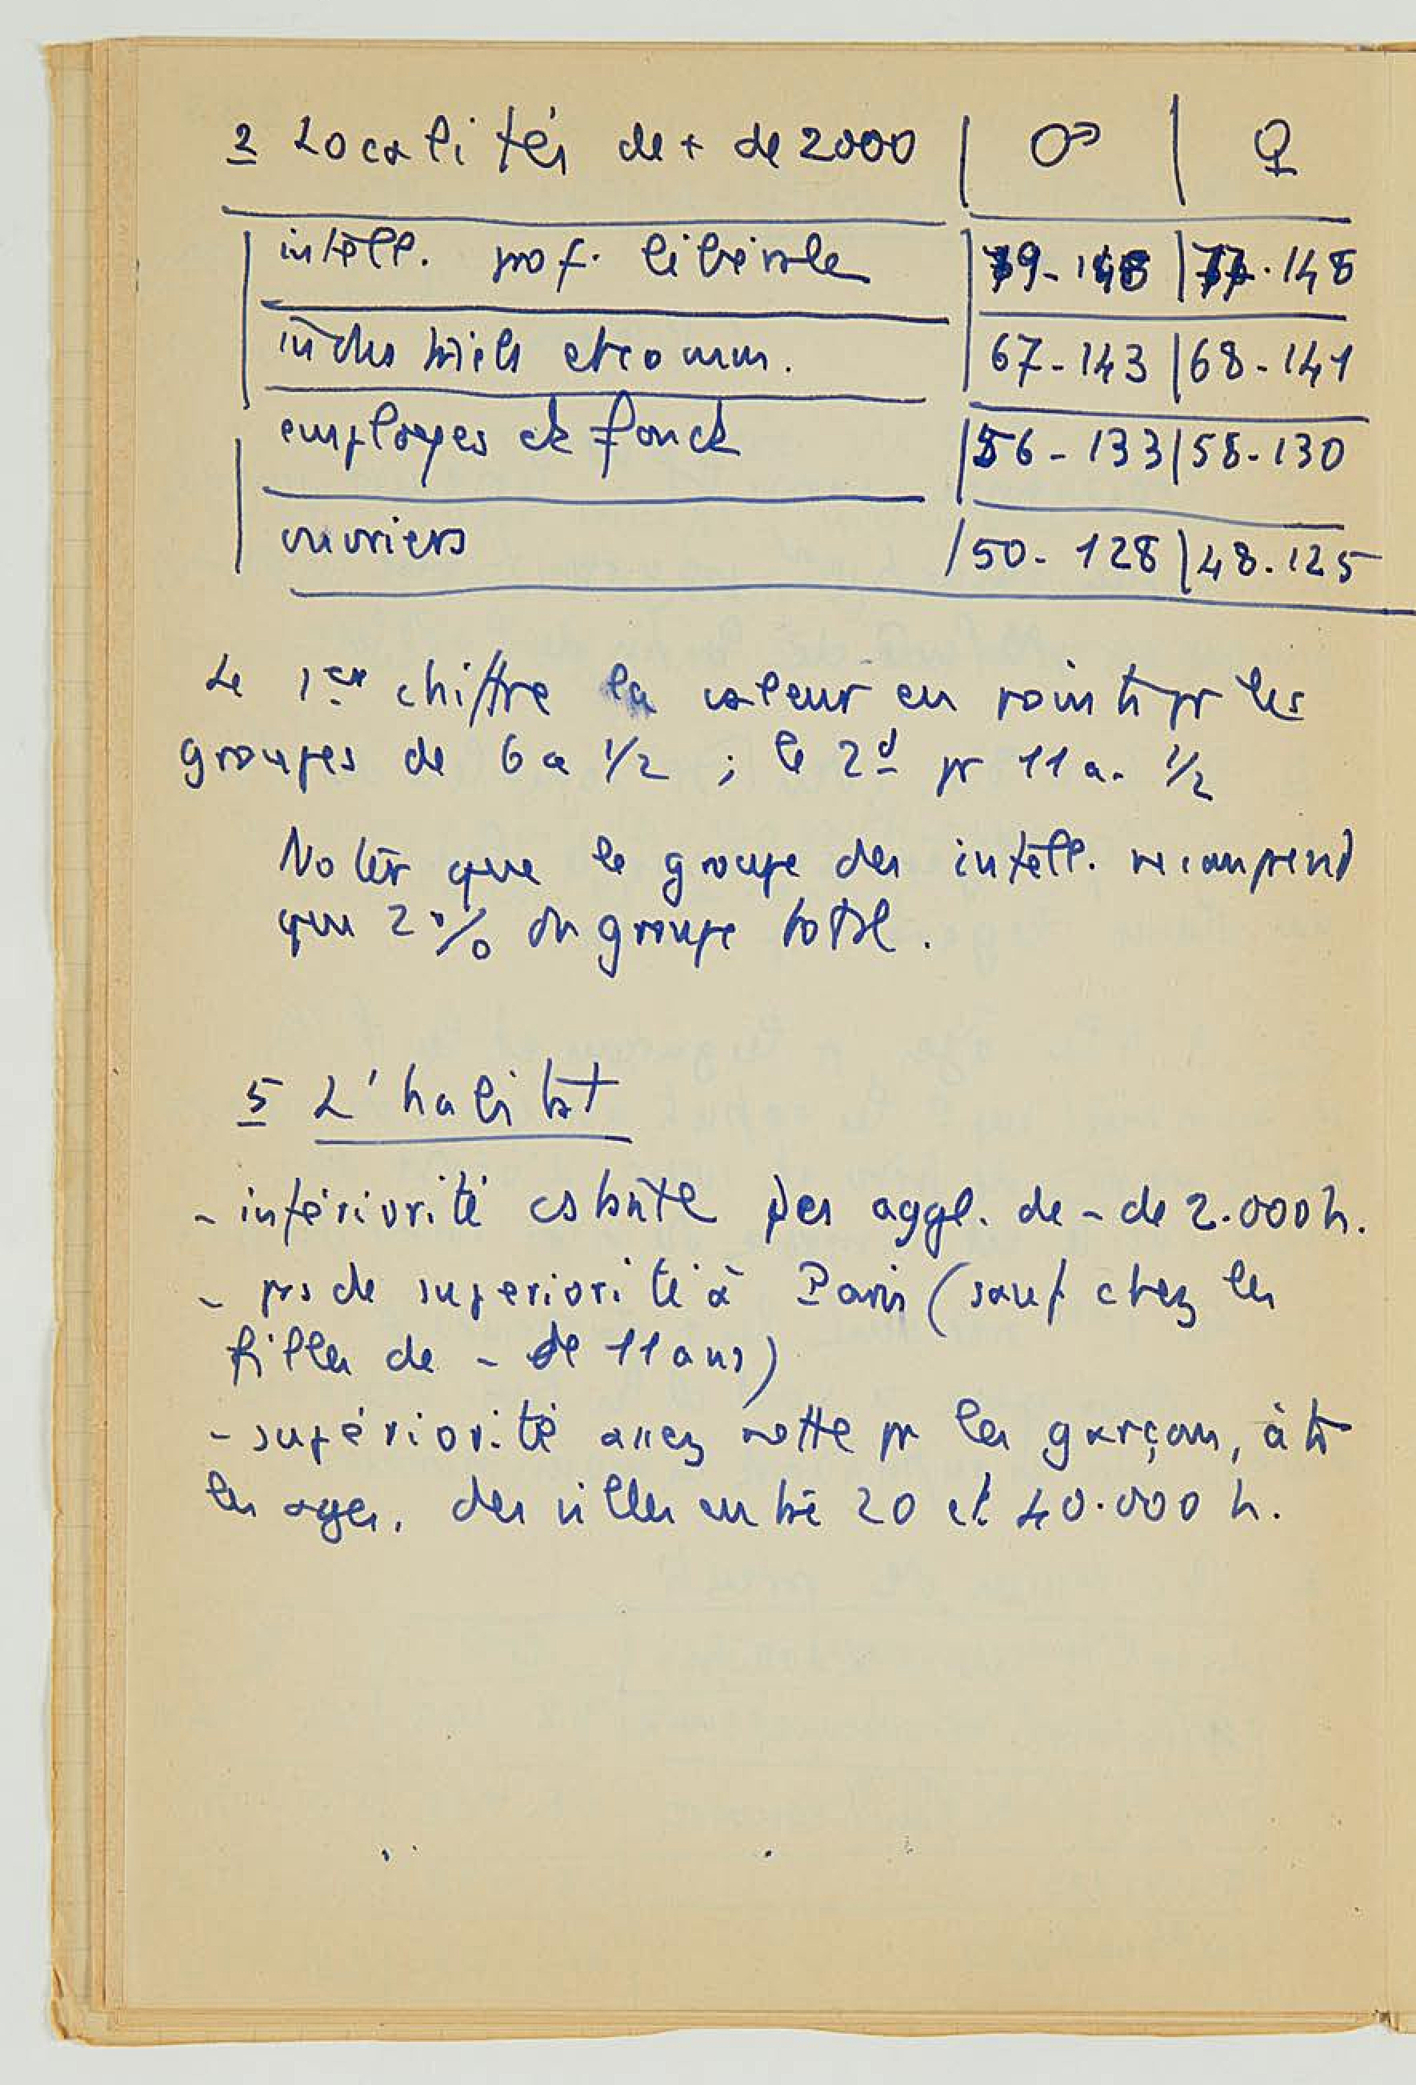 2 Localités de + de 2000 | ♂ | ♀
intell. prof. libérale | 79-148 | 77.148
industriels et comm. | 67-143 | 68-141
employes et fonct | 56-133 | 58-130
ouvriers | 50-128 | 48.125
Le 1er chiffre la valeur en points pr les
groupes de 6 a 1/2 ; le 2d pr 11 a. 1/2
Noter que le groupe des intell. ne comprend
que 2% du groupe total.
5 L'habitat
- infériorité cstante des aggl. de - de 2.000 h.
- pas de superiorité à Paris (sauf chez les
filles de - de 11 ans)
- supériorité assez nette pr les garçons, à ts
les ages, des villes entre 20 et 40.000 h.